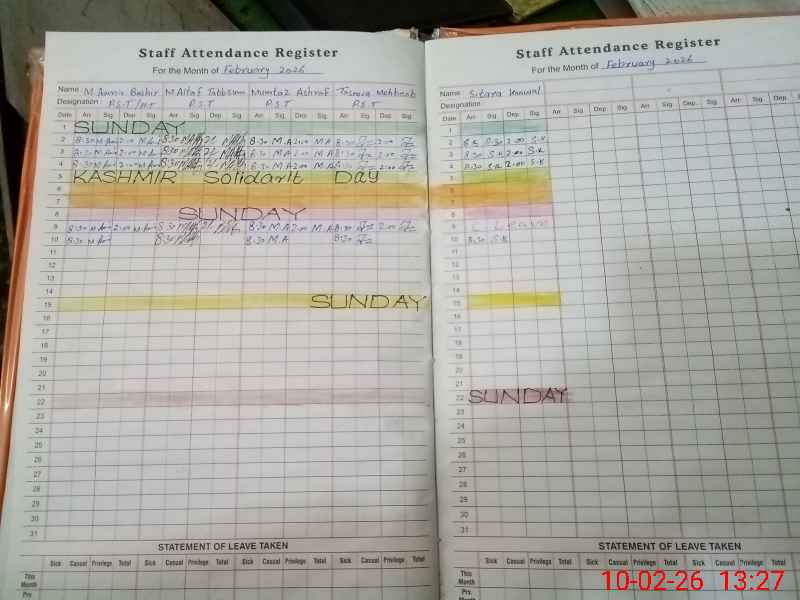 Staff Attendance Register
For the Month of February 2026
Name M Aamir Bashir M Altaf Tabbsum Mumtaz Ashraf Tasnova Mehboob
Designation P.S.T/HT P.S.T P.S.T P.S.T
Date Arr. Sig. Dep. Sig. Arr. Sig. Dep. Sig. Arr. Sig. Dep. Sig. Arr. Sig. Dep. Sig.
1 SUNDAY
2 8:30 2:00 8:30 8:30 M.A 2:00 M.A 8:30 2:00
3 8:30 2:00 8:30 8:30 M.A 2:00 M.A 8:30 2:00
4 8:30 2:00 8:30 8:30 M.A 2:00 M.A 8:30 2:00
5 KASHMIR Solidarit Day
6
7
8 SUNDAY
9 8:30 2:00 8:30 8:30 M.A 2:00 M.A 8:30 2:00
10 8:30 8:30 8:30 M.A 8:30
11
12
13
14
15 SUNDAY
16
17
18
19
20
21
22
23
24
25
26
27
28
29
30
31
STATEMENT OF LEAVE TAKEN
Sick Casual Privilege Total Sick Casual Privilege Total Sick Casual Privilege Total Sick Casual Privilege Total
This Month
Prv.
Staff Attendance Register
For the Month of February 2026
Name Sitara Kanwal
Designation
Date Arr. Sig. Dep. Sig. Arr. Sig. Dep. Sig. Arr. Sig. Dep. Sig. Arr. Sig.
1
2 S.K 8:30 2:00 S.K
3 8:30 S.K 2:00 S.K
4 8:30 S.K 2:00 S.K
5
6
7
8
9
10 8:30 S.K
11
12
13
14
15
16
17
18
19
20
21
22 SUNDAY
23
24
25
26
27
28
29
30
31
STATEMENT OF LEAVE TAKEN
Sick Casual Privilege Total Sick Casual Privilege Total Sick Casual Privilege Total
This Month
Prv.
10-02-26 13:27